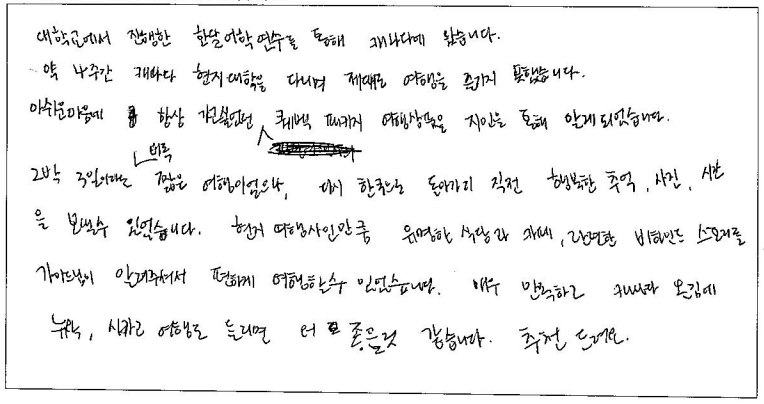 대학교에서 진행한 한달 어학연수를 통해 캐나다에 왔습니다.
약 4주간 캐나다 현지대학을 다니며 제대로 여행을 즐기지 못했습니다.
아쉬운마음에 항상 가고싶었던 퀘벡 패키지 여행상품을 지인을 통해 알게되었습니다.
비록
2박 3일이라는 짧은 여행이었으나, 다시 한국으로 돌아가기 직전 행복한 추억, 사진, 시간
을 보낼수 있었습니다. 현지 여행사인만큼 유명한 식당과 카페, 관련한 비하인드 스토리를
가이드님이 알려주셔서 편하게 여행할수 있었습니다. 매우 만족하고 캐나다 온김에
뉴욕, 시카고 여행도 들리면 더 좋을것 같습니다. 추천 드려요.